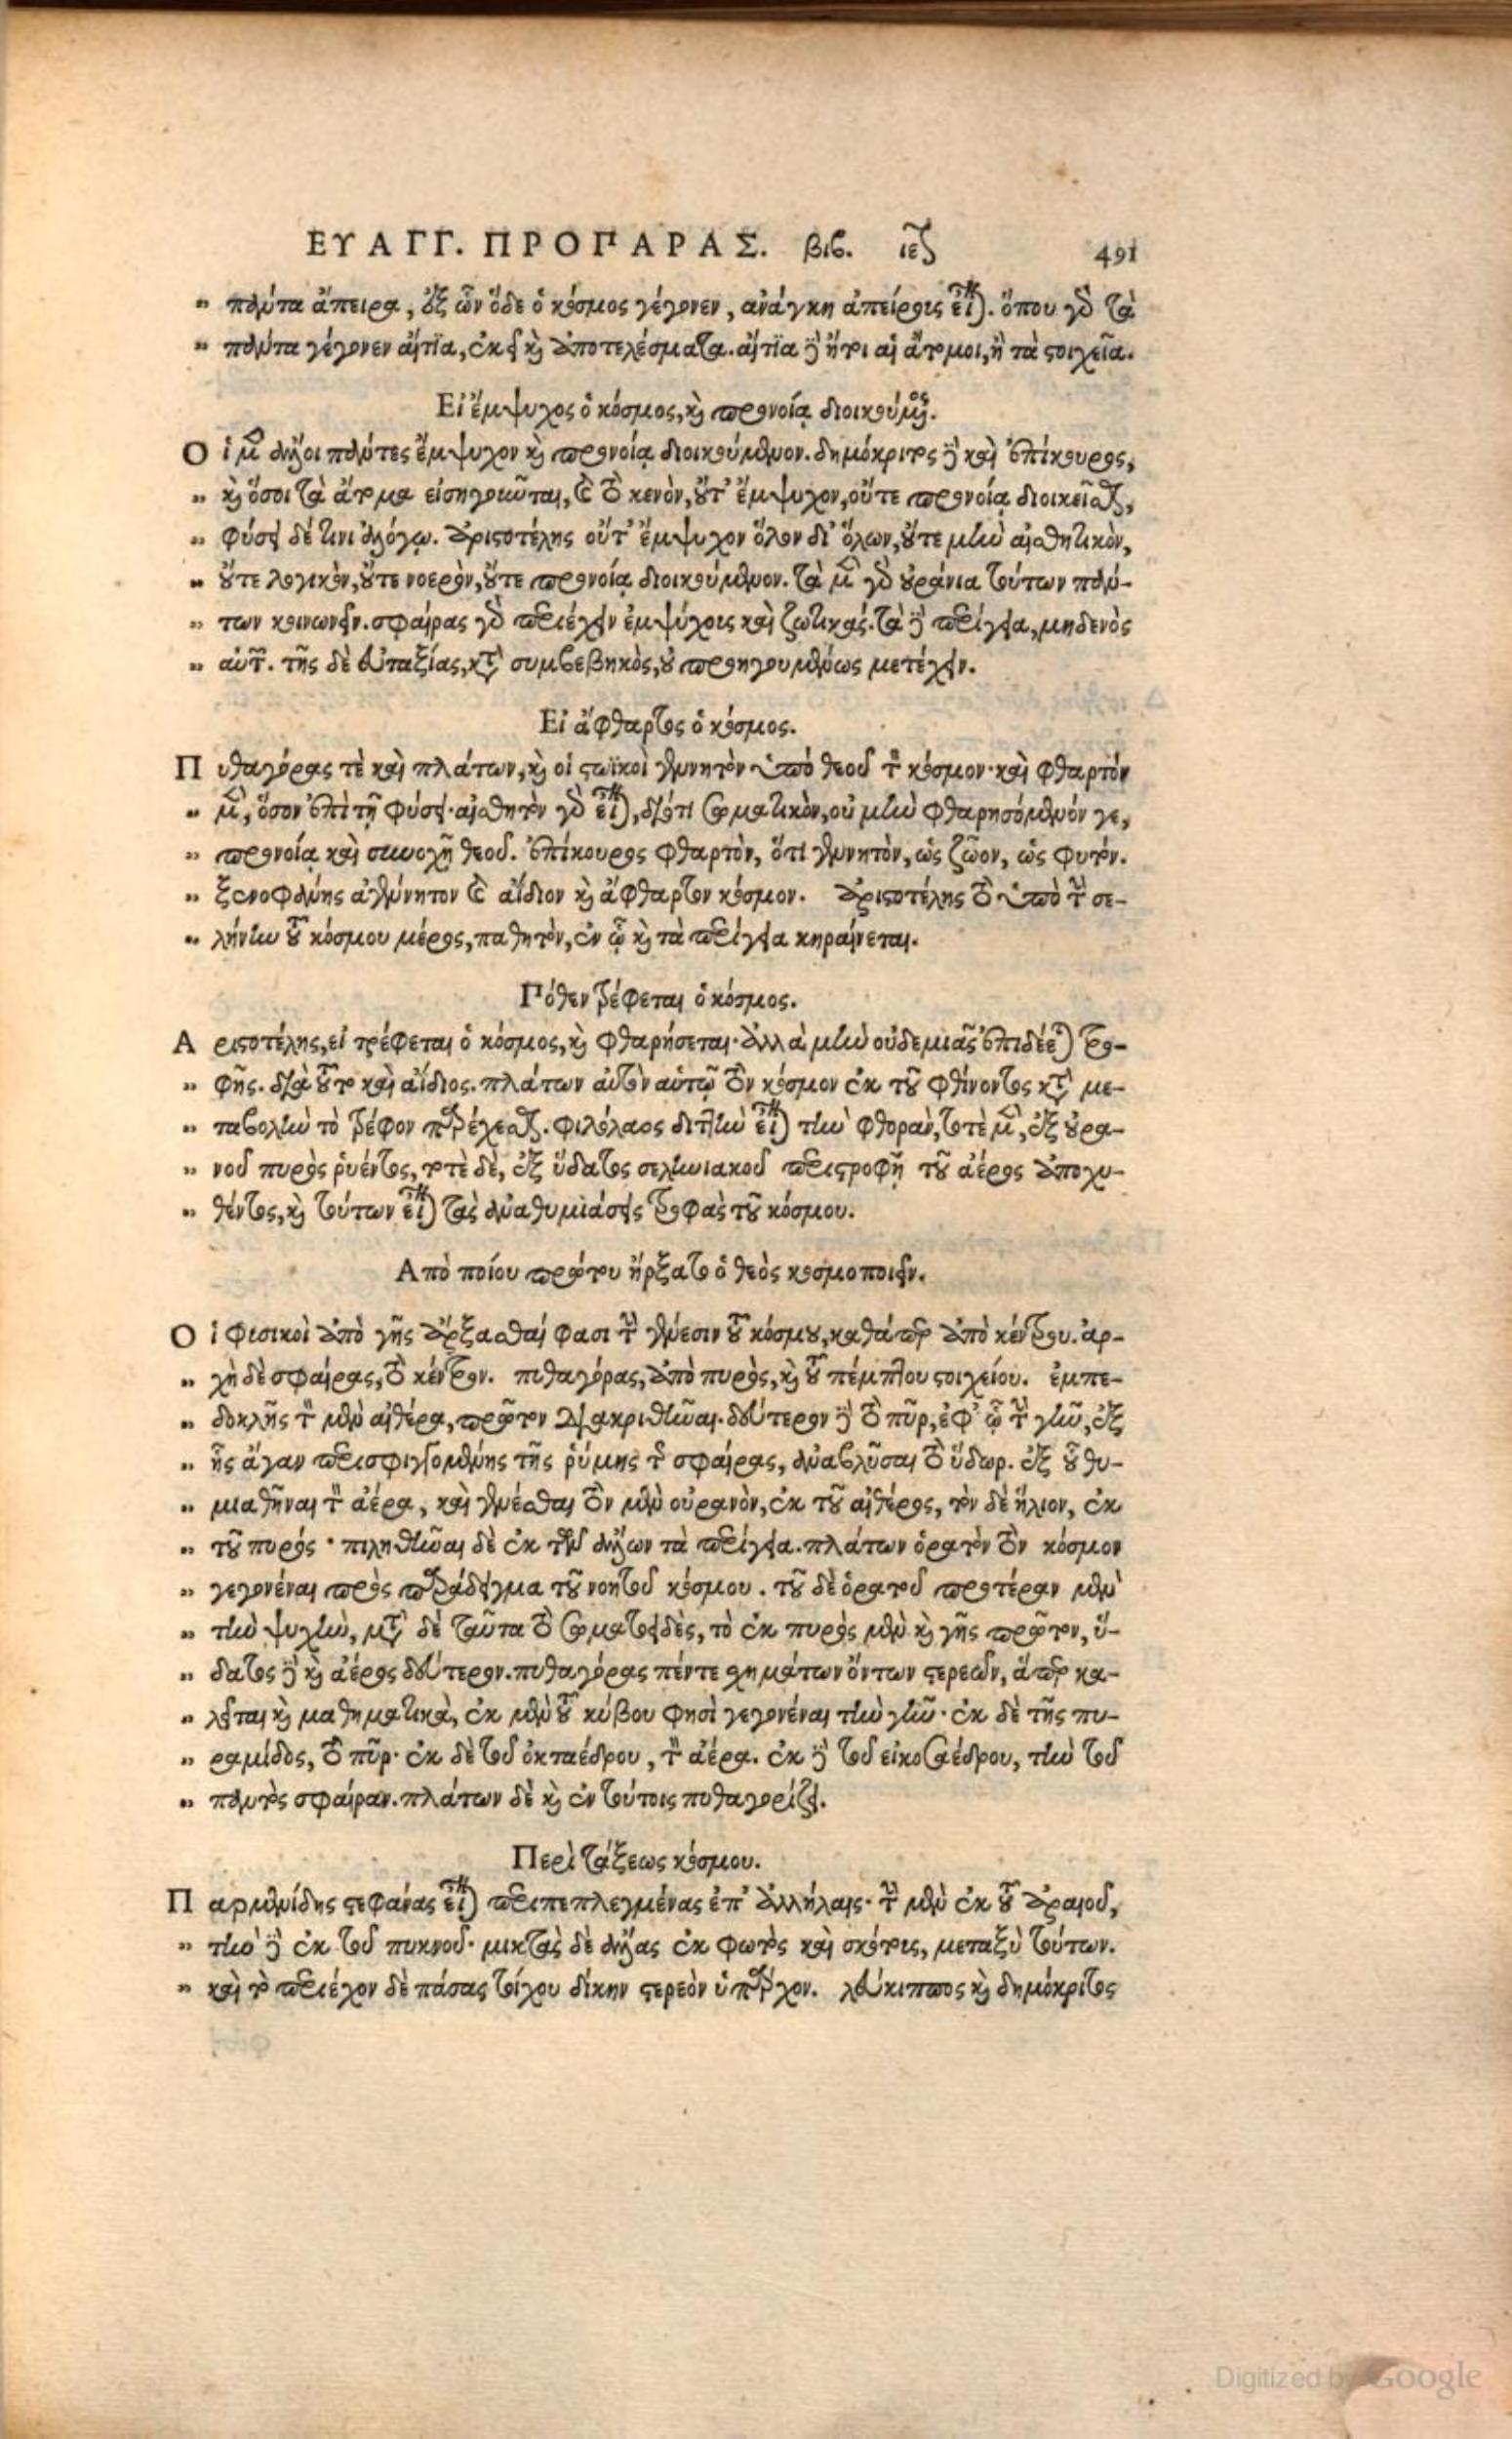 ΕΥΑΓΓ. ΠΡΟΠΑΡΑΣ. βιβ. ιε 491
„ πάντα ἄπειρα, ἐξ ὧν ὅδε ὁ κόσμος γέγονεν, ἀνάγκη ἀπείρους εἶναι. ὅπου γὰρ τὰ
„ πάντα γέγονεν αἴτϊα, ἐκεῖ καὶ ἀποτελέσματα. αἴτϊα δὲ ἤτοι αἱ ἄτομοι, ἢ τὰ στοιχεῖα.
Εἰ ἔμψυχος ὁ κόσμος, καὶ προνοίᾳ διοικούμενος.
Οἱ μὲν ἄλλοι πάντες ἔμψυχον καὶ προνοίᾳ διοικούμενον. δημόκριτος δὲ καὶ ἐπίκουρος,
„ καὶ ὅσοι τὰ ἄτομα εἰσηγοῦνται, καὶ τὸ κενὸν, οὔτ' ἔμψυχον, οὔτε προνοίᾳ διοικεῖσθαι,
„ φύσει δέ τινι ἀλόγῳ. ἀριστοτέλης οὔτ' ἔμψυχον ὅλον δι' ὅλων, οὔτε μὴν αἰσθητικὸν,
„ οὔτε λογικὸν, οὔτε νοερὸν, οὔτε προνοίᾳ διοικούμενον. τὰ μὲν γὰρ οὐράνια τούτων πάν-
„ των κοινωνεῖν. σφαίρας γὰρ περιέχειν ἐμψύχους καὶ ζωτικάς. τὰ δὲ περίγεια, μηδενὸς
„ αὐτῶν. τῆς δὲ εὐταξίας, κατὰ συμβεβηκὸς, οὐ προηγουμένως μετέχειν.
Εἰ ἄφθαρτος ὁ κόσμος.
Πυθαγόρας τὲ καὶ πλάτων, καὶ οἱ στωϊκοὶ γενητὸν ὑπὸ θεοῦ τὸν κόσμον· καὶ φθαρτὸν
„ μὲν, ὅσον ἐπὶ τῇ φύσει· αἰσθητὸν γὰρ εἶναι, διότι σωματικὸν, οὐ μὴν φθαρησόμενόν γε,
„ προνοίᾳ καὶ συνοχῇ θεοῦ. ἐπίκουρος φθαρτὸν, ὅτι γενητὸν, ὡς ζῶον, ὡς φυτόν.
„ ξενοφάνης ἀγένητον καὶ αἴδιον καὶ ἄφθαρτον κόσμον. ἀριστοτέλης τὸ ὑπὸ τὴν σε-
„ λήνην τοῦ κόσμου μέρος, παθητὸν, ἐν ᾧ καὶ τὰ περίγεια κηραίνεται.
Πόθεν τρέφεται ὁ κόσμος.
Αριστοτέλης, εἰ τρέφεται ὁ κόσμος, καὶ φθαρήσεται· ἀλλὰ μὴν οὐδεμιᾶς ἐπιδέεται τρο-
„ φῆς. διὰ τοῦτο καὶ αἴδιος. πλάτων αὐτὸν αὑτῷ τὸν κόσμον ἐκ τοῦ φθίνοντος κατὰ με-
„ ταβολὴν τὸ τρέφον παρέχεσθαι. φιλόλαος διττὴν εἶναι τὴν φθορὰν, τοτὲ μὲν, ἐξ οὐρα-
„ νοῦ πυρὸς ῥυέντος, τοτὲ δὲ, ἐξ ὕδατος σεληνιακοῦ περιστροφῇ τοῦ ἀέρος ἀποχυ-
„ θέντος, καὶ τούτων εἶναι τὰς ἀναθυμιάσεις τροφὰς τοῦ κόσμου.
Ἀπὸ ποίου πρώτου ἤρξατο ὁ θεὸς κοσμοποιεῖν.
Οἱ φυσικοὶ ἀπὸ γῆς ἄρξασθαί φασι τὴν γένεσιν τοῦ κόσμου, καθάπερ ἀπὸ κέντρου. ἀρ-
„ χὴ δὲ σφαίρας, τὸ κέντρον. πυθαγόρας, ἀπὸ πυρὸς, καὶ τοῦ πέμπτου στοιχείου. ἐμπε-
„ δοκλῆς τὸν μὲν αἰθέρα, πρῶτον διακριθῆναι. δεύτερον δὲ τὸ πῦρ, ἐφ' ᾧ τὴν γῆν, ἐξ
„ ἧς ἄγαν περισφιγγομένης τῆς ῥύμης τῆς σφαίρας, ἀναβλῦσαι τὸ ὕδωρ. ἐξ οὗ θυ-
„ μιαθῆναι τὸν ἀέρα, καὶ γενέσθαι τὸν μὲν οὐρανὸν, ἐκ τοῦ αἰθέρος, τὸν δὲ ἥλιον, ἐκ
„ τοῦ πυρός· πιληθῆναι δὲ ἐκ τῶν ἄλλων τὰ περίγεια. πλάτων ὁρατὸν τὸν κόσμον
„ γεγονέναι πρὸς παράδειγμα τοῦ νοητοῦ κόσμου. τοῦ δὲ ὁρατοῦ προτέραν μὲν
„ τὴν ψυχὴν, μετὰ δὲ ταῦτα τὸ σωματοειδὲς, τὸ ἐκ πυρὸς μὲν καὶ γῆς πρῶτον, ὕ-
„ δατος δὲ καὶ ἀέρος δεύτερον. πυθαγόρας πέντε σχημάτων ὄντων στερεῶν, ἅπερ κα-
„ λεῖται καὶ μαθηματικὰ, ἐκ μὲν τοῦ κύβου φησὶ γεγονέναι τὴν γῆν· ἐκ δὲ τῆς πυ-
„ ραμίδος, τὸ πῦρ· ἐκ δὲ τοῦ ὀκταέδρου, τὸν ἀέρα. ἐκ δὲ τοῦ εἰκοσαέδρου, τὴν τοῦ
„ παντὸς σφαῖραν. πλάτων δὲ καὶ ἐν τούτοις πυθαγορίζει.
Περὶ τάξεως κόσμου.
Παρμενίδης στεφάνας εἶναι περιπεπλεγμένας ἐπ' ἀλλήλαις· τὴν μὲν ἐκ τοῦ ἀραιοῦ,
„ τὴν δὲ ἐκ τοῦ πυκνοῦ· μικτὰς δὲ ἄλλας ἐκ φωτὸς καὶ σκότους, μεταξὺ τούτων.
„ καὶ τὸ περιέχον δὲ πάσας τοίχου δίκην στερεὸν ὑπάρχον. λεύκιππος καὶ δημόκριτος
Digitized by Google